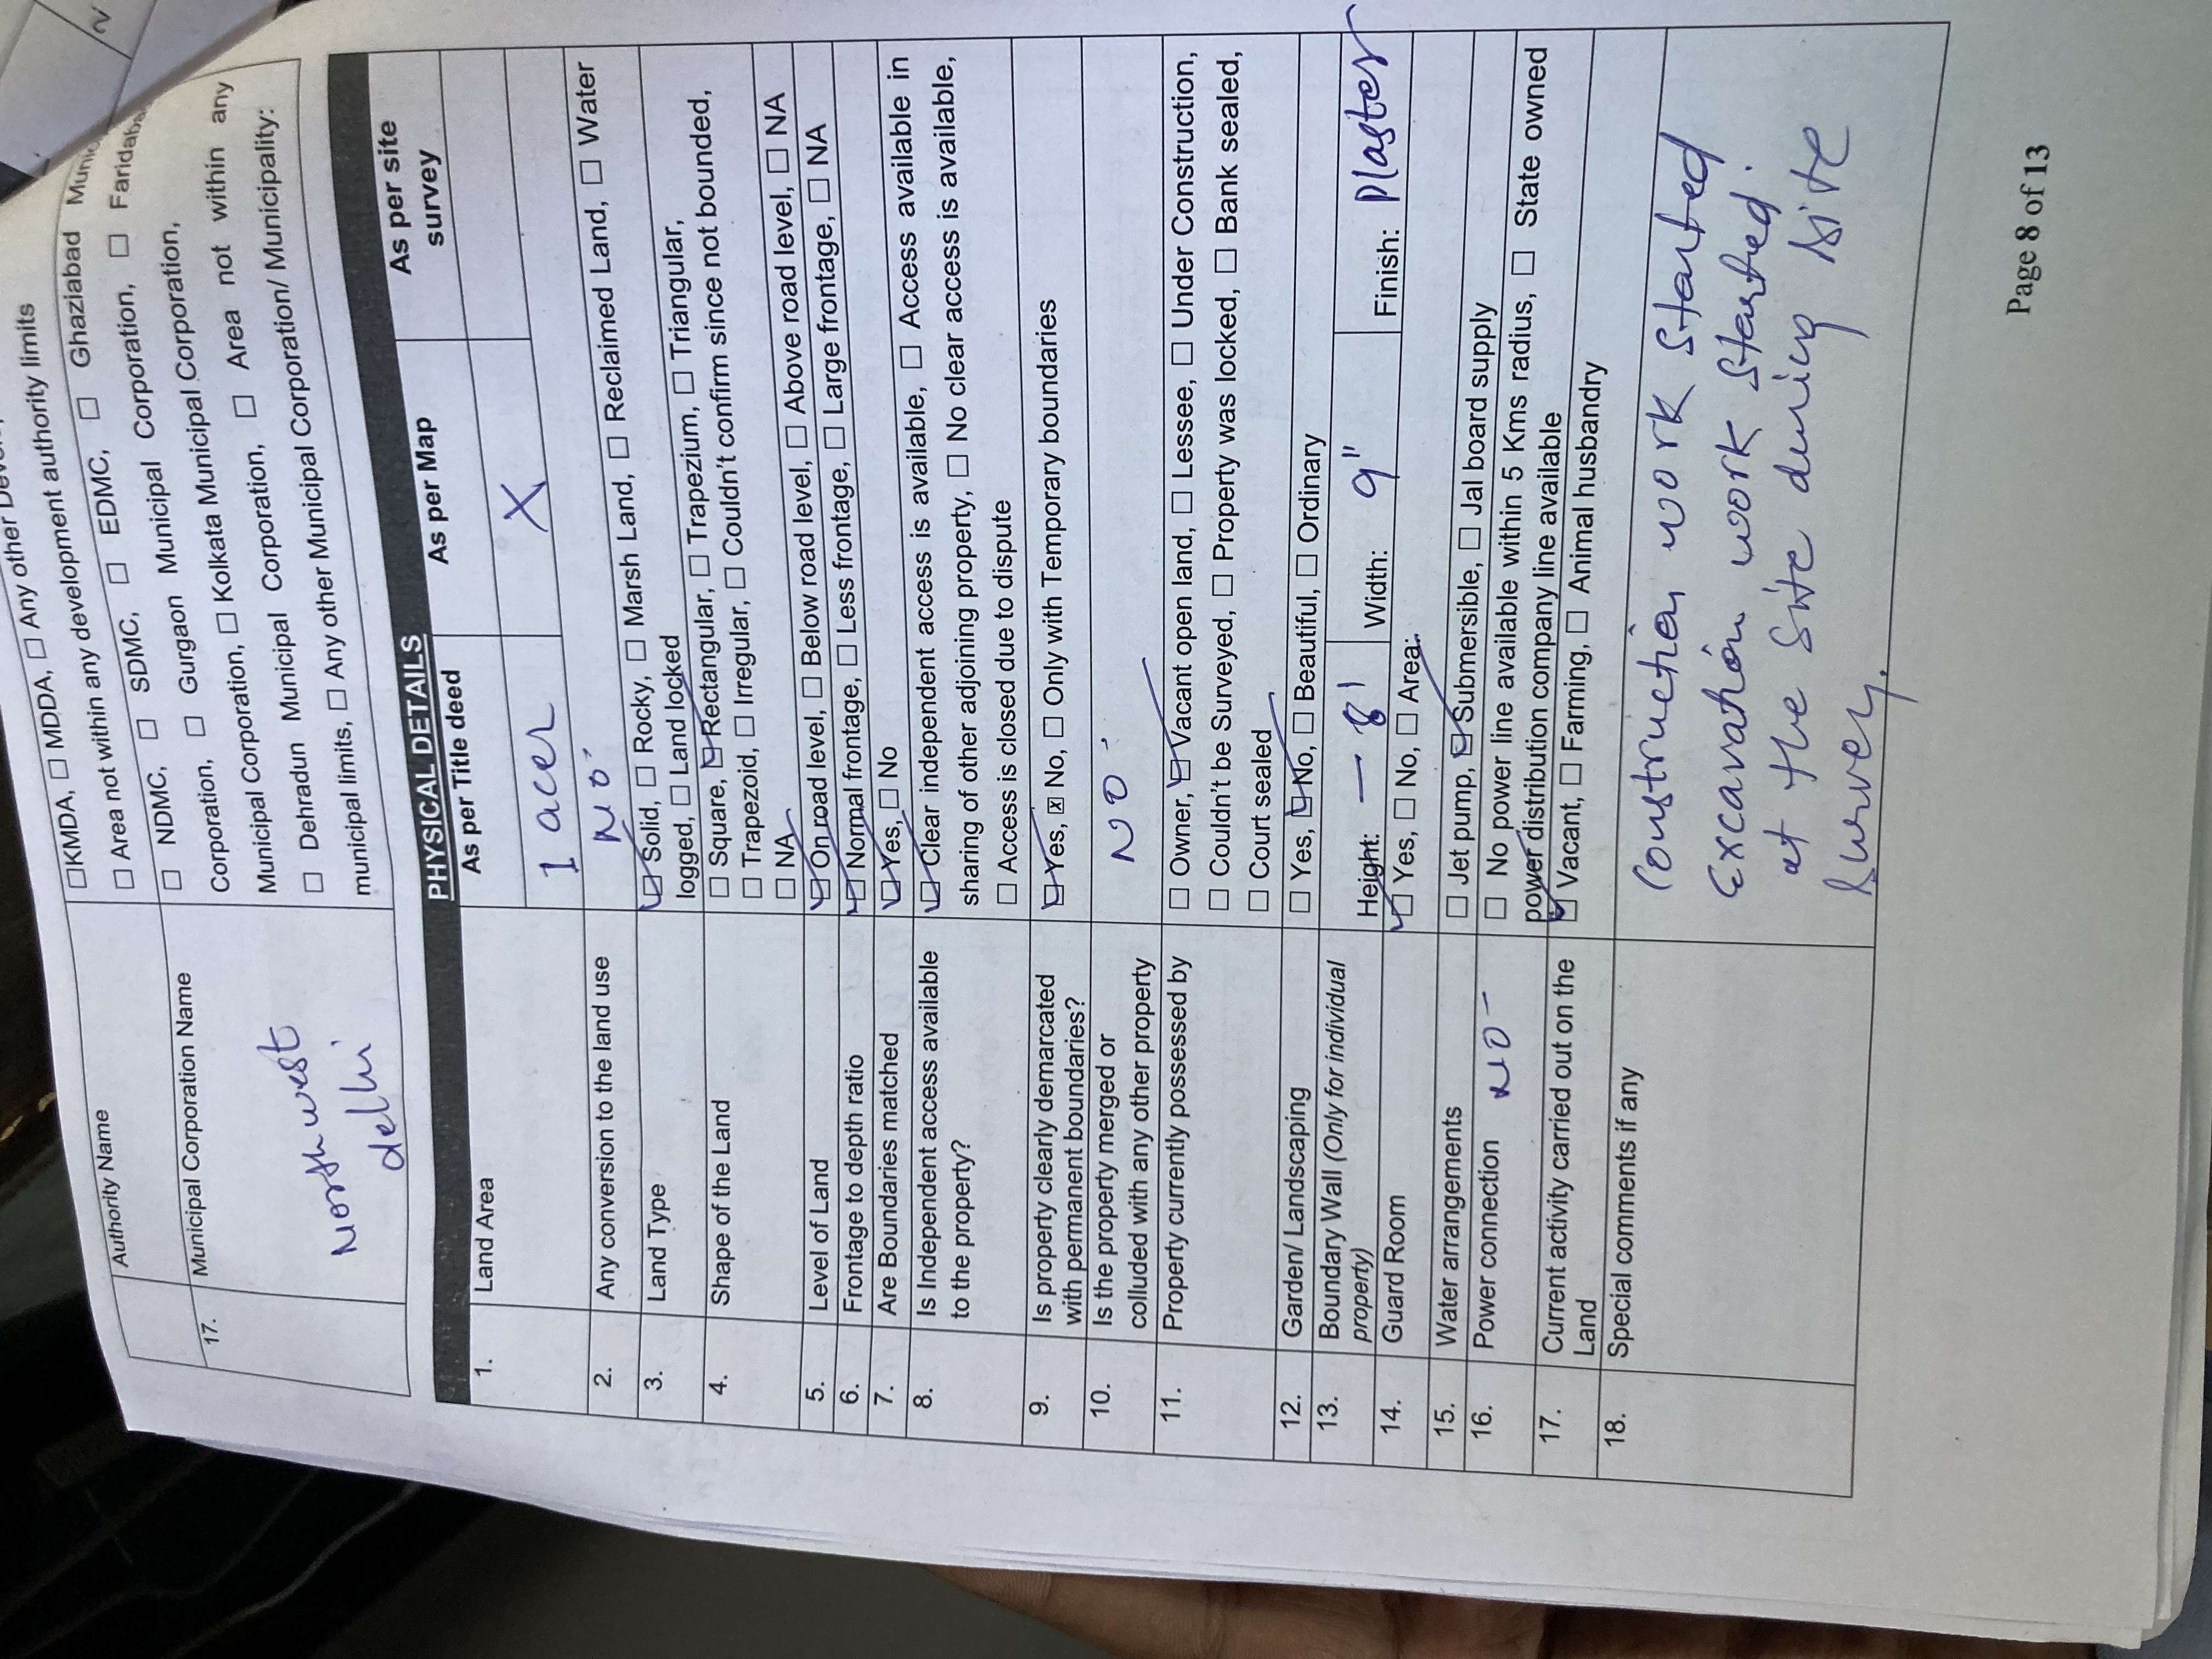 ☐KMDA, ☐ MDDA, ☐ Any other development authority limits
Authority Name
☐ Area not within any development authority limits
17. Municipal Corporation Name
☐ NDMC, ☐ SDMC, ☐ EDMC, ☐ Ghaziabad
Corporation, ☐ Gurgaon Municipal Corporation, ☐
Municipal Corporation, ☐ Kolkata Municipal Corporation,
☐ Dehradun Municipal Corporation, ☐ Area not within any
municipal limits, ☐ Any other Municipal Corporation/ Municipality:
North west
delhi
PHYSICAL DETAILS
1. Land Area
As per Title deed As per Map As per site survey
1 acer X
2. Any conversion to the land use No
3. Land Type ☑ Solid, ☐ Rocky, ☐ Marsh Land, ☐ Reclaimed Land, ☐ Water
logged, ☐ Land locked
4. Shape of the Land ☐ Square, ☑ Rectangular, ☐ Trapezium, ☐ Triangular,
☐ Trapezoid, ☐ Irregular, ☐ Couldn't confirm since not bounded,
☐ NA
5. Level of Land ☑ On road level, ☐ Below road level, ☐ Above road level, ☐ NA
6. Frontage to depth ratio ☑ Normal frontage, ☐ Less frontage, ☐ Large frontage, ☐ NA
7. Are Boundaries matched ☑ Yes, ☐ No
8. Is Independent access available
to the property?
☑ Clear independent access is available, ☐ Access available in
sharing of other adjoining property, ☐ No clear access is available,
☐ Access is closed due to dispute
9. Is property clearly demarcated
with permanent boundaries?
☑ Yes, ☒ No, ☐ Only with Temporary boundaries
10. Is the property merged or
colluded with any other property
NO
11. Property currently possessed by ☐ Owner, ☑ Vacant open land, ☐ Lessee, ☐ Under Construction,
☐ Couldn't be Surveyed, ☐ Property was locked, ☐ Bank sealed,
☐ Court sealed
12. Garden/ Landscaping ☐ Yes, ☑ No, ☐ Beautiful, ☐ Ordinary
13. Boundary Wall (Only for individual
property)
Height: — 8' Width: 9" Finish: Plaster
14. Guard Room ☑ Yes, ☐ No, ☐ Area:
15. Water arrangements ☐ Jet pump, ☑ Submersible, ☐ Jal board supply
16. Power connection NO - ☐ No power line available within 5 Kms radius, ☐ State owned
power distribution company line available
17. Current activity carried out on the
Land
☑ Vacant, ☐ Farming, ☐ Animal husbandry
18. Special comments if any
Construction work started
Excavation work started.
at the site during site
survey.
Page 8 of 13